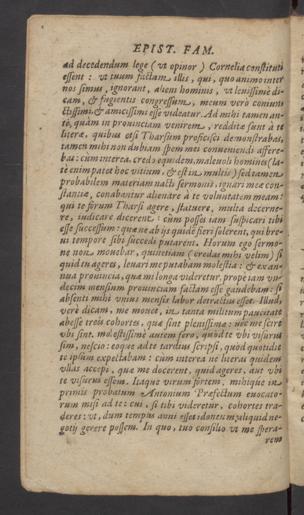 EPIST. FAM.
ad decedendum lege (vt opinor) Cornelia constituti
essent: vt tuum factum illis, qui, quo animo inter
nos simus, ignorant, alieni hominis, vt leuissimè di-
cam, & fugientis congressum, meum verò coniun
ctissimi, & amicissimi esse videatur. Ad mihi tamen an-
tè, quàm in prouinciam venirem, redditæ sunt à te
literæ, quibus etsi Tharsum proficisci demonstrabas,
tamen mihi non dubiam spem mei conueniendi affere-
bas: cum interea, credo equidem, maleuoli homines (la-
tè enim patet hoc vitium, & est in multis) sed tamen
probabilem materiam nacti sermonis, ignari meæ con-
stantiæ, conabantur alienare à te voluntatem meam:
qui te forum Tharsi agere, statuere, multa decerne-
re, iudicare dicerent: cùm posses iam suspicari tibi
esse successum: quæ ne ab ijs quidem fieri solerent, qui bre-
ui tempore sibi succedi putarent. Horum ego sermo-
ne non mouebar, quinetiam (credas mihi velim) si
quid tu ageres, leuari me putabam molestia: & ex an-
nua prouincia, quæ mi longa videretur, prope iam vn-
decim mensium prouinciam factam esse gaudebam: si
absenti mihi vnius mensis labor detractus esset. Illud,
verò dicam, me mouet, in tanta militum paucitate
abesse treis cohortes, quæ sint plenissimæ: nec me scire
vbi sint. molestissimè autem fero, quòd te vbi visurus
sim, nescio: eoque ad te tardius scripsi, quòd quotidie
te ipsum expectabam: cùm interea ne literas quidem
vllas accepi, quæ me docerent, quid ageres, aut vbi
te visurus essem. Itaque virum fortem, mihique in
primis probatum Antonium Præfectum euocato-
rum misi ad te: cui, si tibi videretur, cohortes tra-
deres: vt, dum tempus anni esset idoneum, aliquid ne-
gotij gerere possem. In quo, tuo consilio vt me spera-
rem